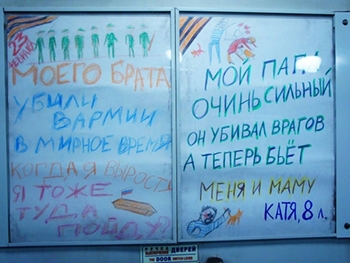 23
ФЕВРАЛЯ
МОЕГО БРАТА
УБИЛИ
В АРМИИ
В МИРНОЕ ВРЕМЯ
КОГДА Я ВЫРОСТУ
Я ТОЖЕ
ТУДА
ПОЙДУ?
МОЙ ПАПА
ОЧИНЬ СИЛЬНЫЙ
ОН УБИВАЛ ВРАГОВ
А ТЕПЕРЬ БЬЁТ
МЕНЯ И МАМУ
КАТЯ, 8 л.
РУЧКА
ВЫКЛЮЧЕНИЯ ДВЕРЕЙ
THE DOOR SWITCH LEVER